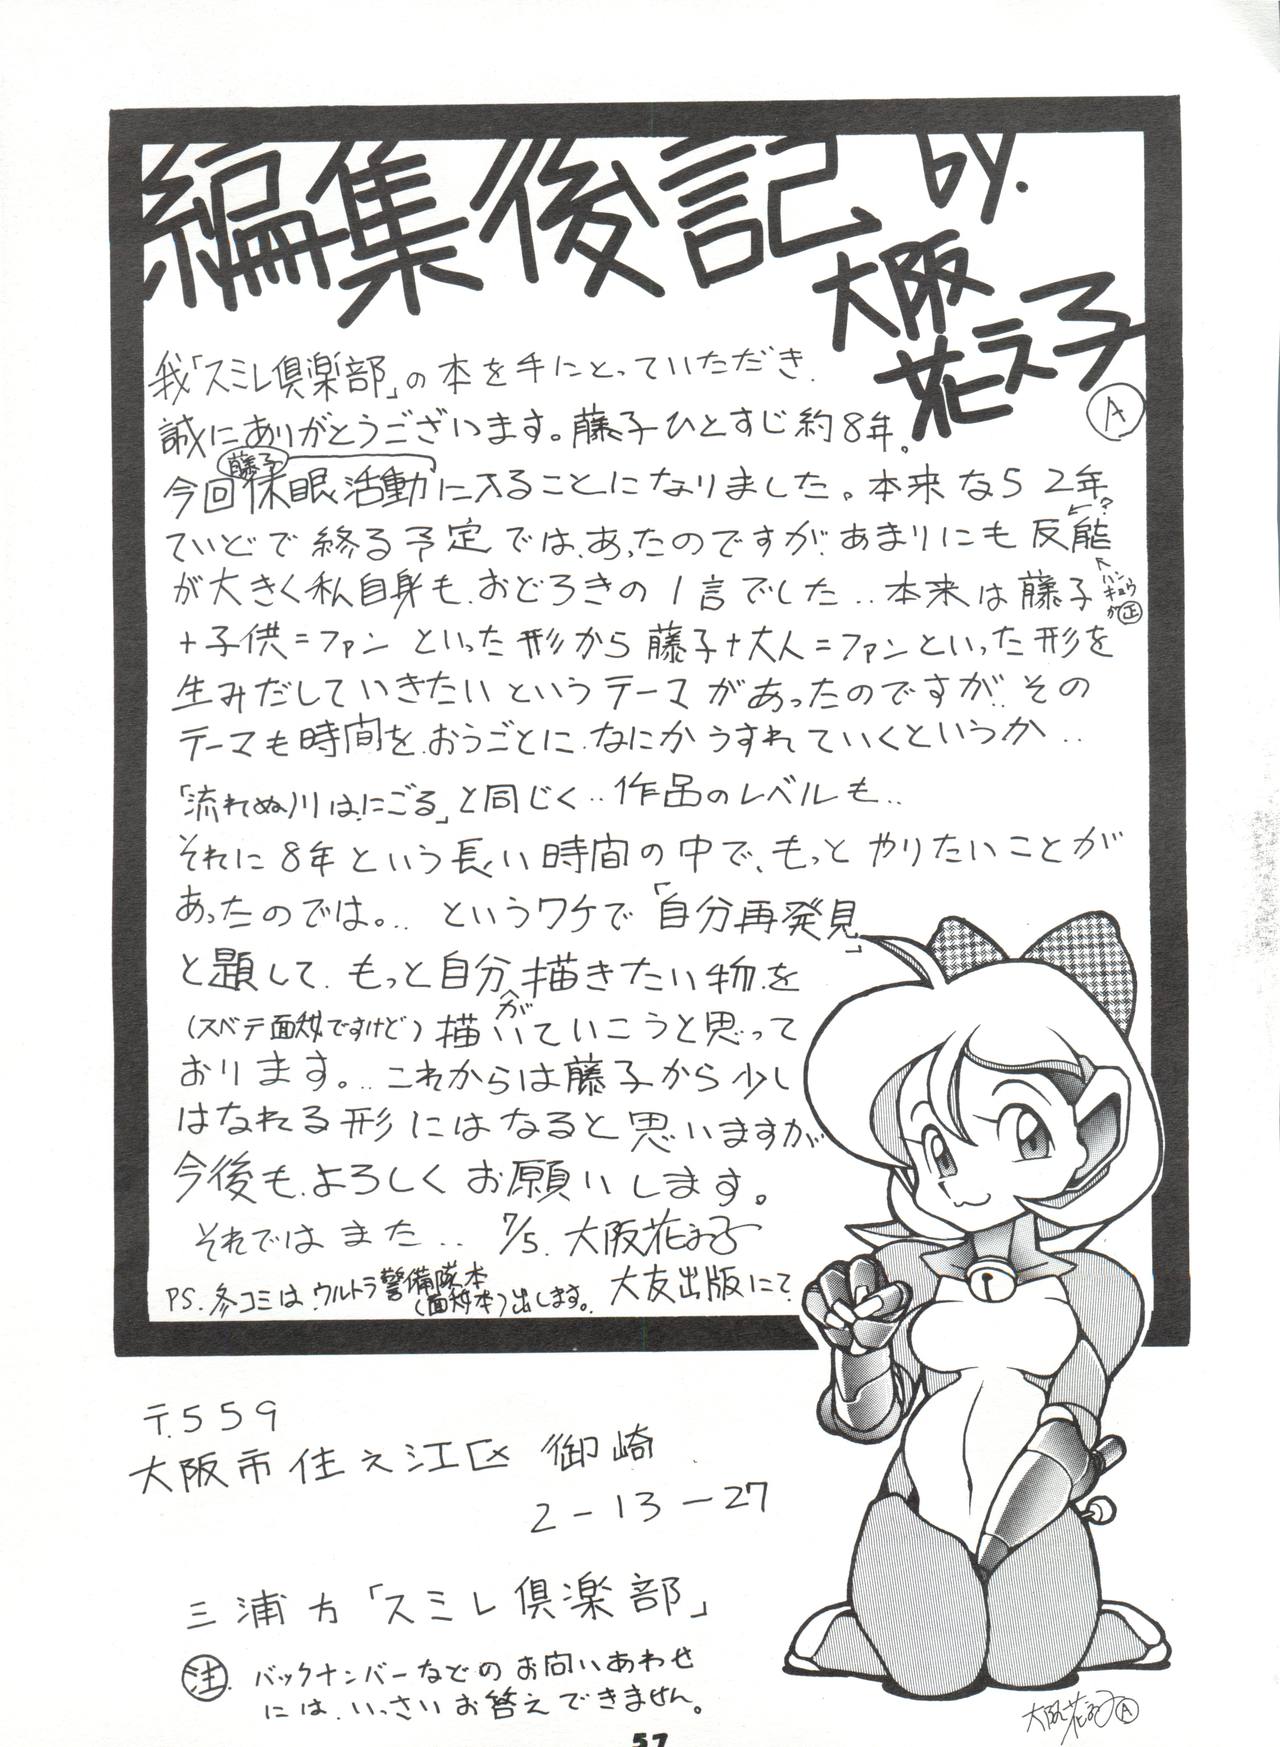 編集後記 by.
大阪
花え子
A
我「スミレ倶楽部」の本を手にとっていただき.
誠にありがとうございます。藤子ひとすじ約8年。
藤子
今回休眠活動に入ることになりました。本来なら2年
ていどで終る予定では、あったのですが、あまりにも反能
←?
ハン
キョウ
が正
が大きく私自身も、おどろきの1言でした...本来は藤子
+子供=ファン といった形から藤子+大人=ファンといった形を
生みだしていきたいというテーマがあったのですが..その
テーマも時間を、おうごとに、なにかうすれていくというか...
「流れぬ川は、にごる」と同じく..作品のレベルも..
それに8年という長い時間の中で、もっとやりたいことが
あったのでは。.. というワケで「自分再発見」
と題して、もっと自分が描きたい物を
(スベテ面妖ですけど)描いていこうと思って
おります。..これからは藤子から少し
はなれる形にはなると思いますが
今後も、よろしくお願いします。
それではまた... 7/5. 大阪花え子
大友出版にて
PS. 冬コミは、ウルトラ警備隊本
(面妖本)出します。
〒559
大阪市住之江区 御崎
2-13-27
三浦方「スミレ倶楽部」
注. バックナンバーなどのお問いあわせ
には、いっさいお答えできません。
大阪花え子 A
57